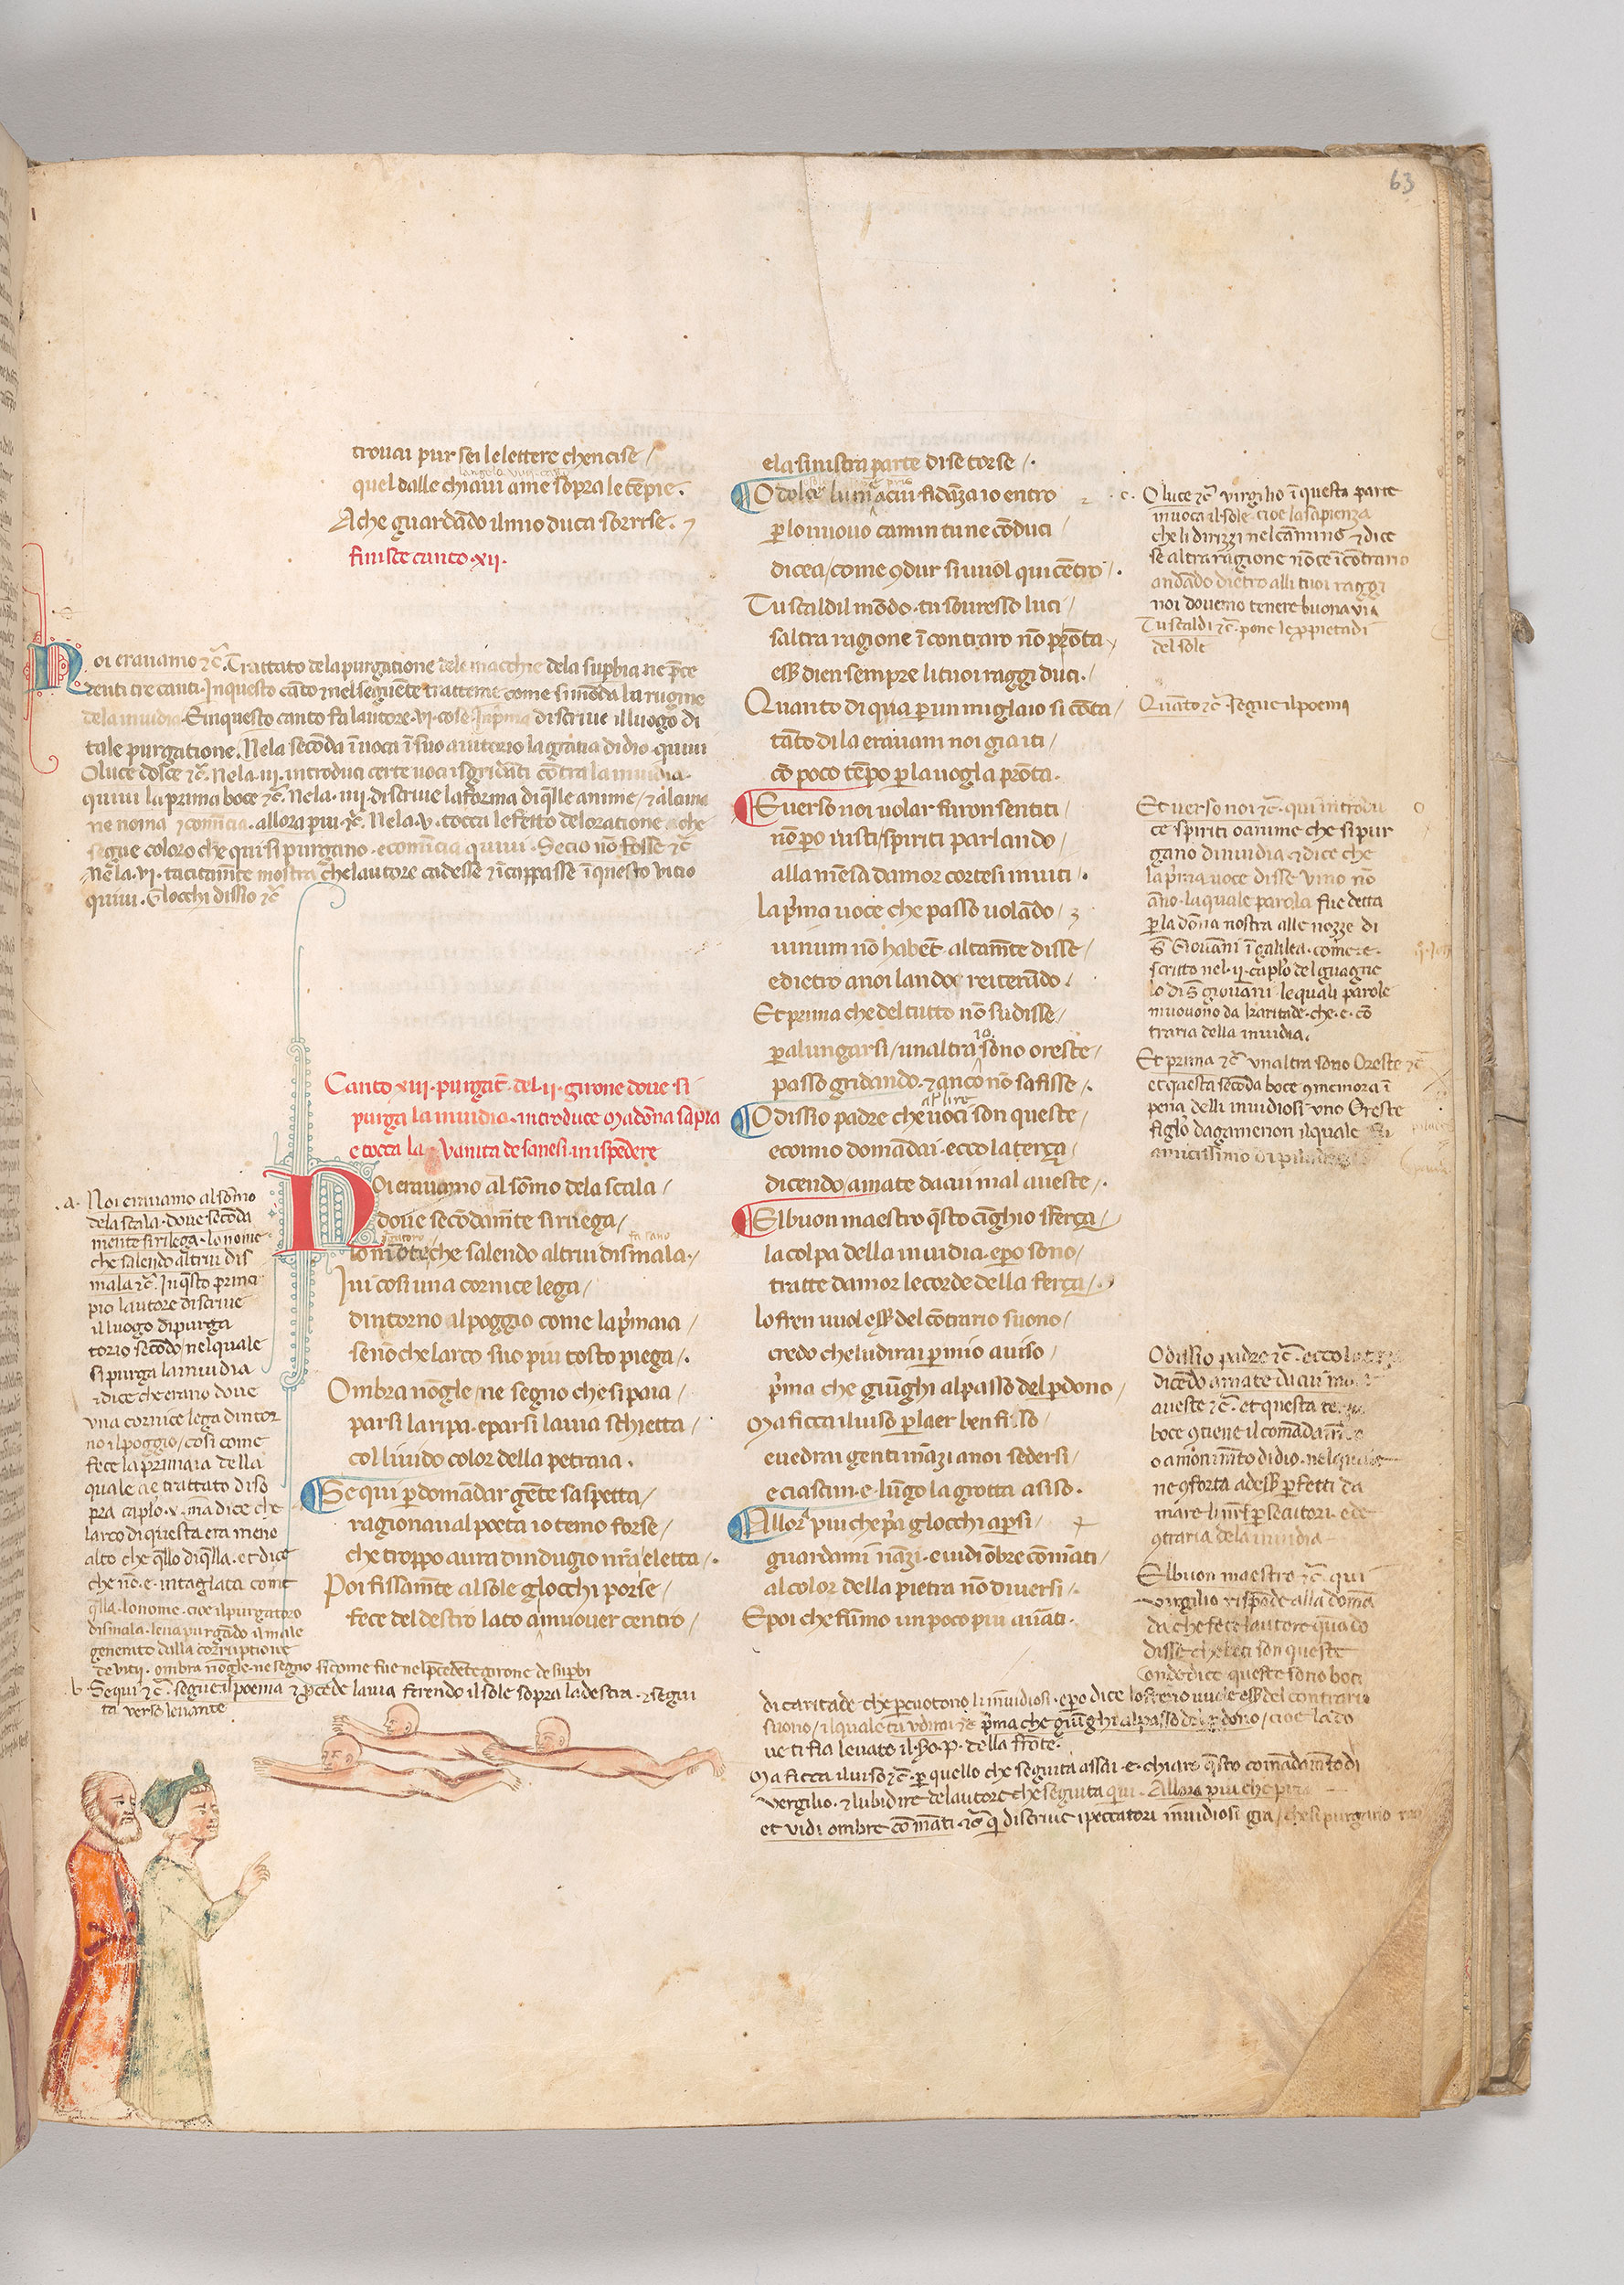 63
trouai pur sei le lettere chencise /
quel dalle chiaui a me sopra le tēpie.
A che guardādo il mio duca sorrise.
finisce canto .xii.
Noi erauamo ⁊c̄. Trattato dela purgatione dele macchie dela supbia ne p̄ce
denti tre canti. In questo cāto ⁊ nel seguēte tratterae come si mōda la rugine
dela inuidia. E in questo canto fa lautore .vi. cose. In p̄ma discriue il luogo di
tale purgatione. Nela secōda īuoca ī suo aiutorio la gratia didio. quiui
O luce dolce ⁊c̄. Nela .iii. introduci certe uoci isgridāti cōtra la inuidia.
quiui la prima boce ⁊c̄. Nela .iiii. discriue la forma di q̄lle anime / ⁊ alcune
ne noma ⁊ comīcia. allora piu ⁊c̄. Nela .v. tocca lefetto deloratione che
segue coloro che qui si purgano. ⁊ comīcia quiui. Se cio nō fosse ⁊c̄
Nela .vi. tacitam̄te mostra chelautore cadesse ⁊ īcappasse ī questo uicio
quiui. Glocchi dissio ⁊c̄
Canto xiii. purgat̄. del .ii. girone doue si
purga la inuidia. introduce Madōna sapia
e tocca la vanita de sanesi. in ispēdere
Noi erauamo al sōmo dela scala /
doue secōdam̄te si riega /
lo mōte, che salendo altrui dismala.
Iui cosi una cornice lega /
dintorno al poggio come la p̄maia /
se nō che larco suo piu tosto piega /.
Ombra nōgle / ne segno che si paia /
parsi la ripa. e parsi la uia schietta /
col liuido color della petraia.
Se qui p̲ domādar gēte saspetta /
ragionaua l poeta io temo forse /
che troppo aura dindugio nr̄a eletta /.
Poi fissam̄te al sole glocchi porse /
fece del destro lato a muouer centro /
.a. Noi erauamo al sōmo
dela scala. doue secōda
mente si rilega. lo nome
che salendo altrui dis
mala ⁊c̄. In q̄sto princi
pio lautore discriue
il luogo di purga
torio secōdo / nel quale
si purga la inuidia
⁊ dice che erano doue
una cornice lega dintor
no il poggio / cosi come
fece la primaia della
quale ae trattato diso
pra caplo .x. ma dice che
larco di questa era meno
alto che q̄llo di q̄lla. et dice
che nō .e. intaglata come
q̄lla. lo nome. cioe il purgatoro
dismala. leua purgādo il male
generato dalla corruptione
de vitii. ombra nōgle. ne segno si come fue nel p̄cedēte girone de supbi
.b. Se qui ⁊c̄. segue il poema ⁊ p̲cede la uia ferendo il sole sopra la destra. ⁊ segui
ta verso leuante
e la sinistra parte di se torse /.
O dolce lume a cui fidāza io entro
p̲ lo nuouo camin tu ne cōduci /
dicea / come ꝯdur si uuol quicētro /.
Tu scaldi l mōdo. tu souresso luci /
saltra ragione ī contraro nō prōta /
esser dien sempre li tuoi raggi duci.
Quanto di qua p̲ un miglaio si cōta /
tāto di la erauam noi gia iti /
cō poco tēpo p̲ la uogla prōta.
E uerso noi uolar furon sentiti /
nō p̲o uisti / spiriti parlando /
alla mēsa damor cortesi inuiti /.
La p̄ma uoce che passo uolādo /
uinum nō habēt altam̄te disse /
e dietro a noi lando reiterādo.
Et prima che del tutto nō sudisse /
p̲ alungarsi / unaltra io sono oreste /
passo gridando. ⁊ anco nō safisse /.
O dissio padre che uoci son queste /
e comio domādai. ecco la terça /
dicendo amate da cui mal aueste /.
El buon maestro q̄sto cīghio sferça /
la colpa della inuidia. e p̲o sono /
tratte damor le corde della ferça /.
Lo fren uuol esser del cōtrario suono /
credo che ludirai p̲ mio auiso /
p̄ma che giūghi al passo del p̲dono /
Ma ficca il uiso p̲ laer ben fiso /
e uedrai genti ināzi a noi sedersi /
e ciascun .e. lūgo la grotta asiso.
Allor piu che p̄a glocchi ap̲si /
guardami nāzi. e uidi ōbre cō māti /
al color della pietra nō diuersi /.
E poi che fūmo un poco piu auāti.
.c. O luce ⁊c̄ virgilio ī questa parte
inuoca il sole. cioe la sapienza
che li dirizzi nel cāmino ⁊ dice
se altra ragione nōce ī cōtrario
andādo dietro alli tuoi raggi
noi douemo tenere buona via
Tu scaldi ⁊c̄. pone le p̲pieta di
del sole
Quāto ⁊c̄ segue il poema
Et uerso noi ⁊c̄. qui introdu
ce spiriti o anime che si pur
gano dinuidia ⁊ dice che
la p̄ma uoce disse vino nō
āno. la quale parola fue detta
p̲ la dōna nostra alle nozze di
s̄ Giouāni ī galilea. come .e.
scritto nel .ii. caplo del guagne
lo di s̄ giouāni le quali parole
muouono da karitade. che .e. cō
traria della inuidia.
Et prima ⁊c̄ unaltra sono Oreste ⁊c̄
et questa secōda boce ꝯmemora ī
pena delli inuidiosi uno Oreste
figlo dagamenon il quale fu
amicissimo di
O dissio padre ⁊c̄. ecco la terça
dicēdo amate da cui mal
aueste ⁊c̄. et questa terça
boce ꝯtiene il comādam̄to
o amonim̄to didio. nel quale
ne ꝯforta adesser p̲fetti da
mare li nr̄i p̲secutori. e de
ꝯtraria dela inuidia
El buon maestro ⁊c̄ qui
virgilio rispōde alla domā
da che fece lautore quādo
disse che uoci son queste
onde dice queste sono boci
di caritade che p̲cuotono li inuidiosi. e p̲o dice lo freno vuole esser del contrario
suono / il quale tu udirai ⁊c̄ p̄ma che giūghi al passo del p̲dono / cioe la do
ue ti fia leuato il .P. della frōte.
Ma ficca il uiso ⁊c̄. p̲ quello che seguita assai .e. chiaro q̄sto comādam̄to di
vergilio. ⁊ lubidire delautore che seguita qui. Allora piu che pria
et vidi ombre cō māti ⁊c̄ q̄ discriue i peccatori inuidiosi gia / che si purgano